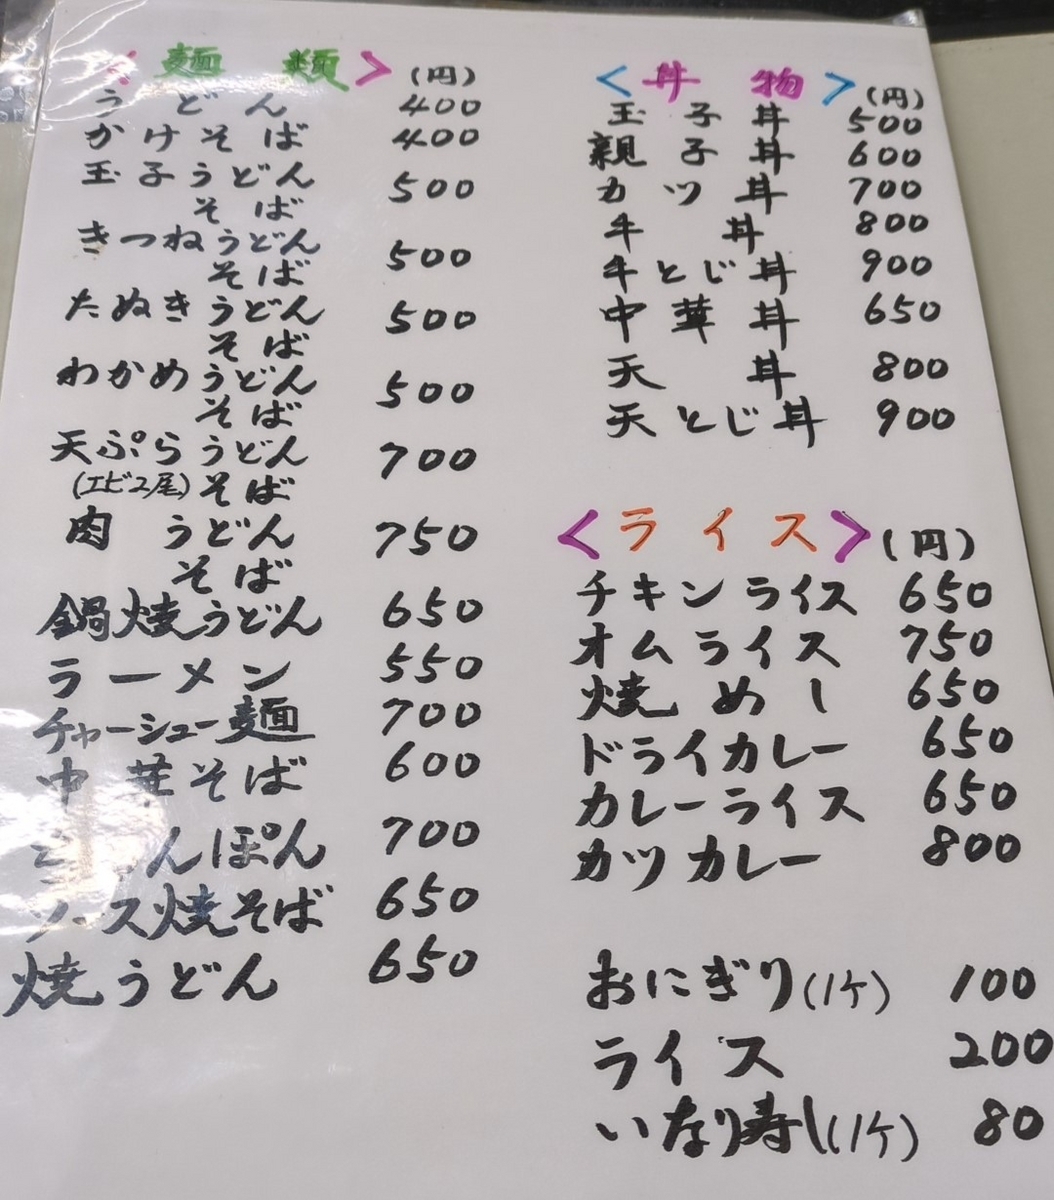 <麺 類> (円)
うどん 400
かけそば 400
玉子うどん 500
そば
きつねうどん 500
そば
たぬきうどん 500
そば
わかめうどん 500
そば
天ぷらうどん 700
(エビ2尾) そば
肉 うどん 750
そば
鍋焼うどん 650
ラーメン 550
チャーシュー麺 700
中華そば 600
んぽん 700
ソース焼そば 650
焼うどん 650
<丼 物> (円)
玉子丼 500
親子丼 600
カツ丼 700
牛丼 800
牛とじ丼 900
中華丼 650
天丼 800
天とじ丼 900
<ライス> (円)
チキンライス 650
オムライス 750
焼めし 650
ドライカレー 650
カレーライス 650
カツカレー 800
おにぎり(1ケ) 100
ライス 200
いなり寿し(1ケ) 80